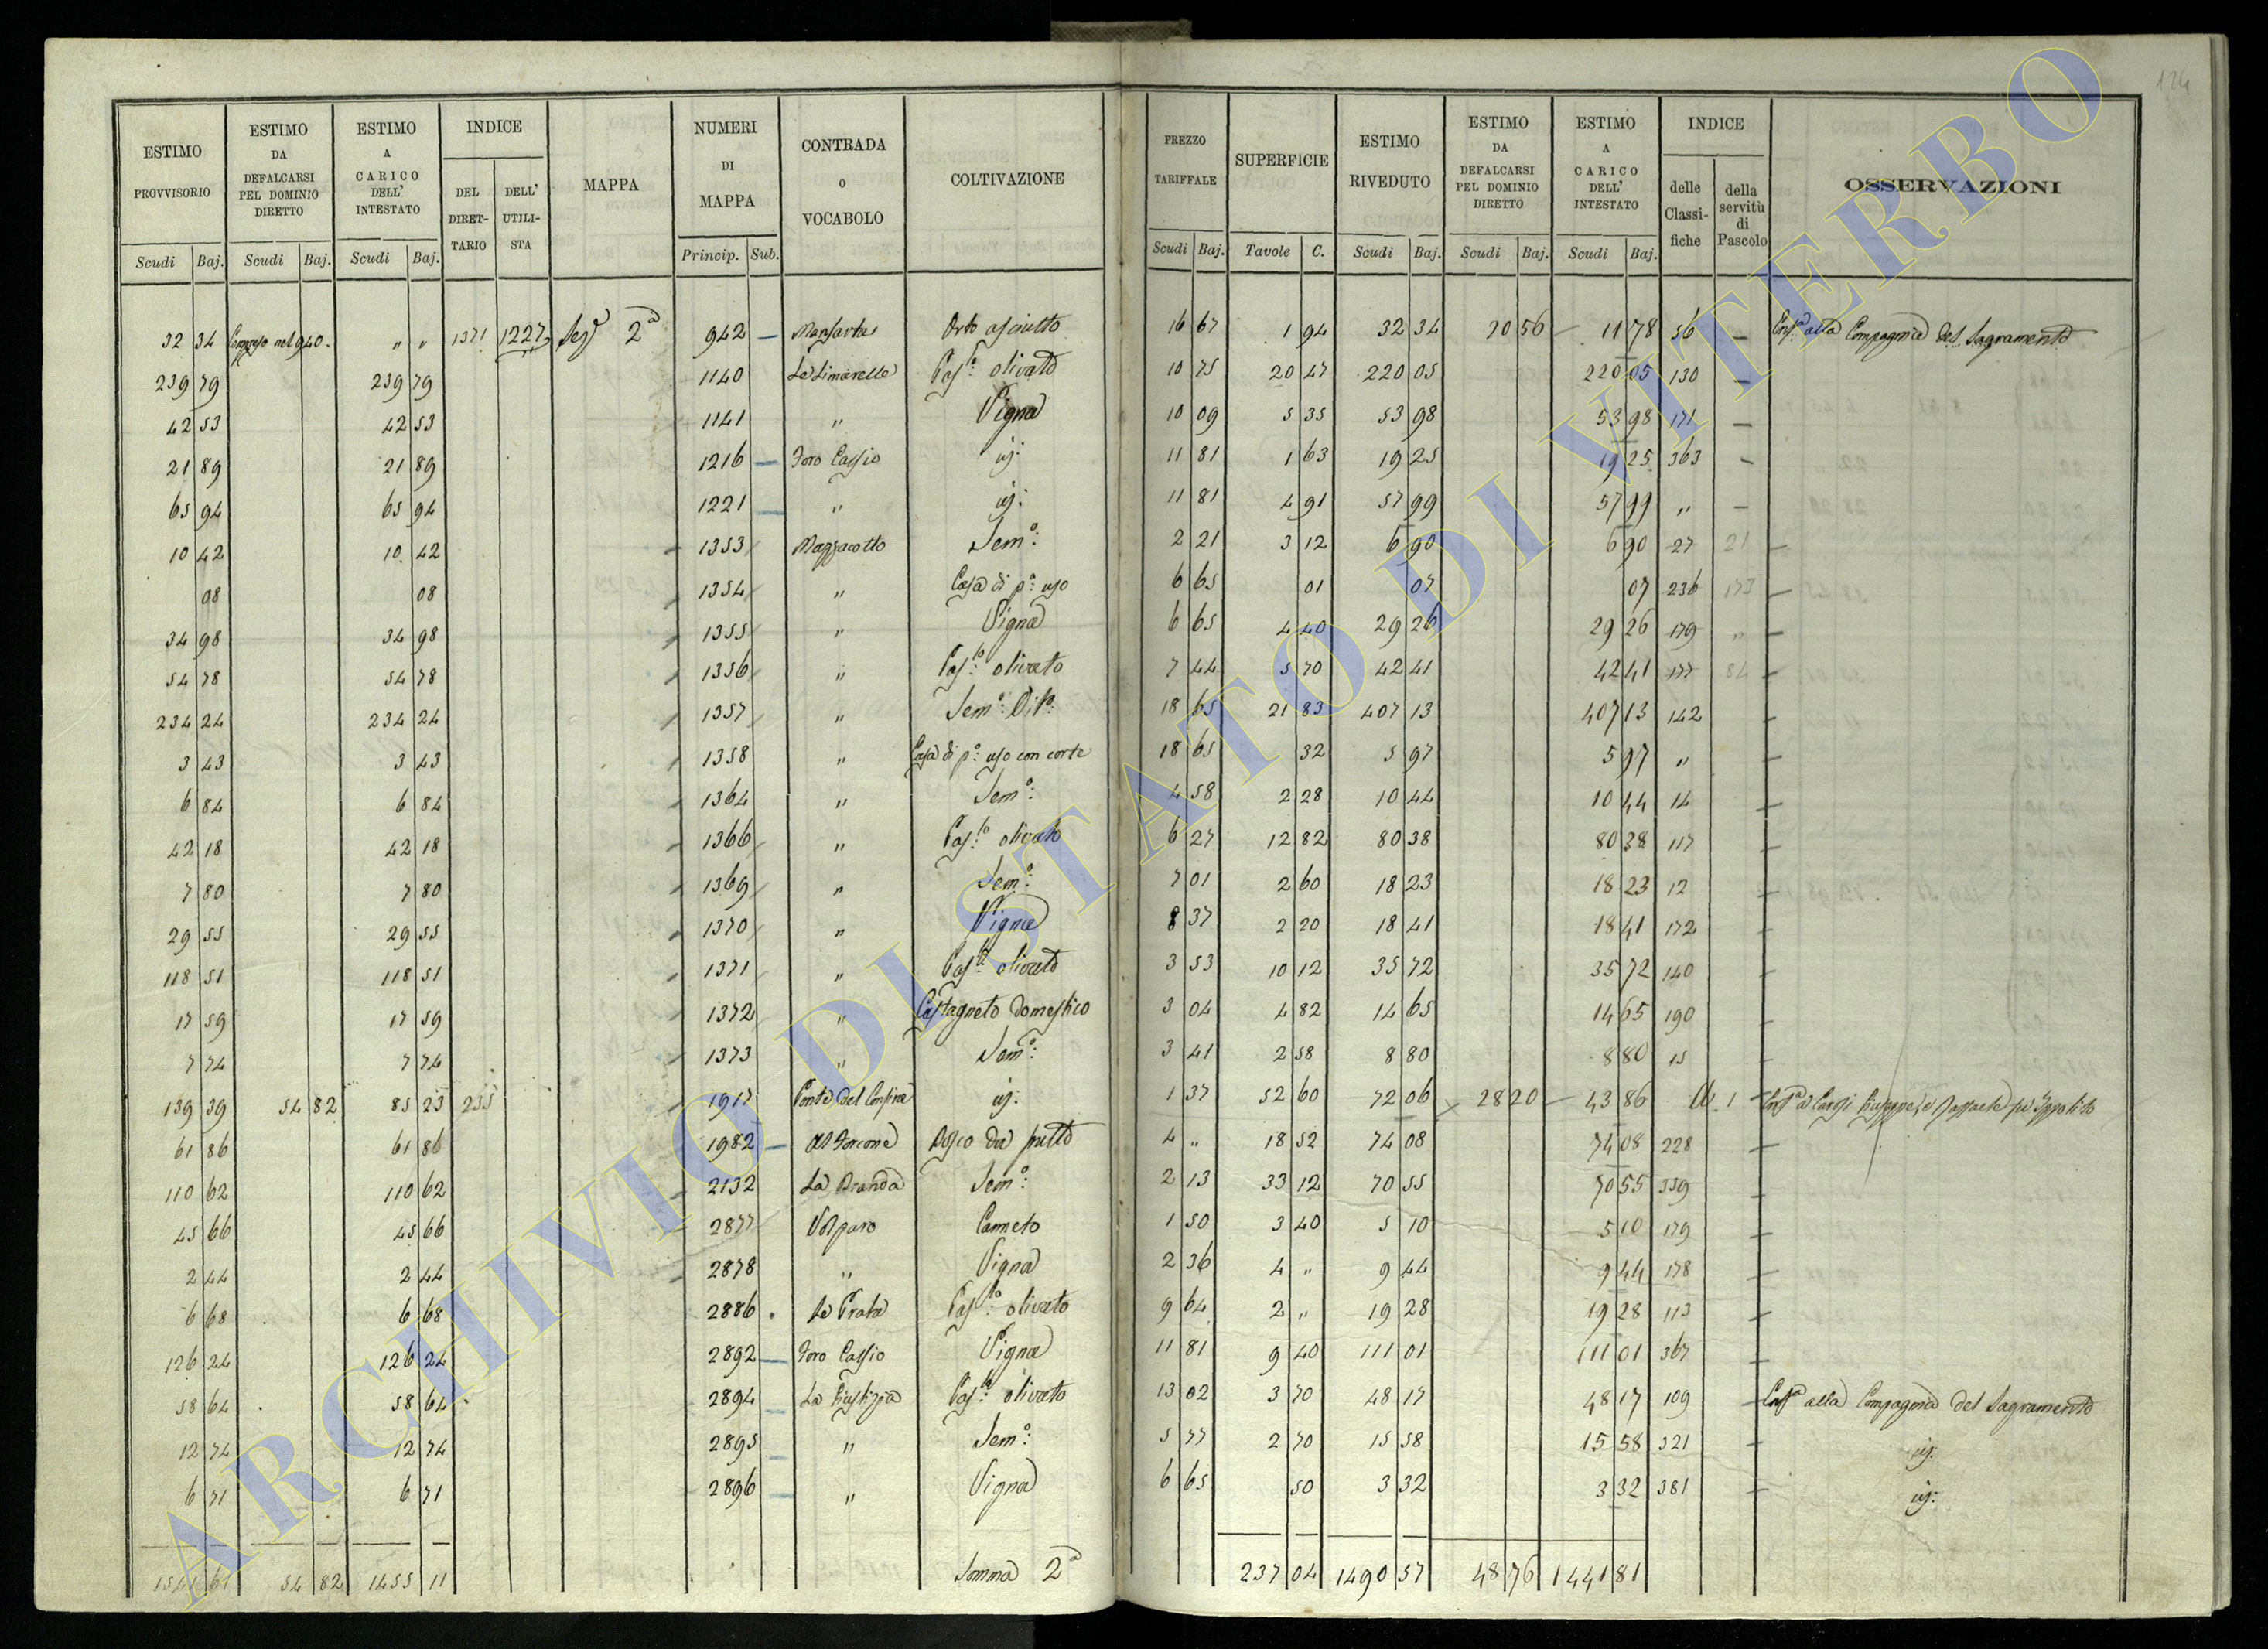 124
ESTIMO PROVVISORIO | ESTIMO DA DEFALCARSI PEL DOMINIO DIRETTO | ESTIMO A CARICO DELL' INTESTATO | INDICE DEL DIRET-TARIO | DELL' UTILI-STA | MAPPA | NUMERI DI MAPPA | CONTRADA O VOCABOLO | COLTIVAZIONE | PREZZO TARIFFALE | SUPERFICIE | ESTIMO RIVEDUTO | ESTIMO DA DEFALCARSI PEL DOMINIO DIRETTO | ESTIMO A CARICO DELL' INTESTATO | INDICE delle Classi-fiche | della servitù di Pascolo | OSSERVAZIONI
Scudi | Baj. | Scudi | Baj. | Scudi | Baj. | Princip. | Sub. | Scudi | Baj. | Tavole | C. | Scudi | Baj. | Scudi | Baj. | Scudi | Baj.
32 34 | Compreso nel 940 | " " | 1371 | 1227 | Seg.e 2a | 942 | Orto asciutto | 16 67 | 1 94 | 32 34 | 20 56 | 11 78 | 56 | alla Compagnia del Sagramento
239 79 | 239 79 | 1140 | Le Limarelle | Pas.to olivato | 10 75 | 20 47 | 220 05 | 220 05 | 130
42 53 | 42 53 | 1141 | " | Vigna | 10 09 | 5 35 | 53 98 | 53 98 | 171
21 89 | 21 89 | 1216 | Foro Cassio | id: | 11 81 | 1 63 | 19 25 | 19 25 | 363
65 94 | 65 94 | 1221 | " | id: | 11 81 | 4 91 | 57 99 | 57 99 | "
10 42 | 10 42 | 1353 | Mazzacotto | Sem.o: | 2 21 | 3 12 | 6 90 | 6 90 | 27 | 21
08 | 08 | 1354 | " | Casa di p.o uso | 6 65 | 01 | 07 | 07 | 236 | 173
34 98 | 34 98 | 1355 | " | Vigna | 6 65 | 4 40 | 29 26 | 29 26 | 179 | "
54 78 | 54 78 | 1356 | " | Pas.to olivato | 7 44 | 5 70 | 42 41 | 42 41 | 177 | 84
234 24 | 234 24 | 1357 | " | Sem.o: | 18 65 | 21 83 | 407 13 | 407 13 | 142
3 43 | 3 43 | 1358 | " | Casa di p.o uso con corte | 18 65 | 32 | 5 97 | 5 97 | "
6 84 | 6 84 | 1364 | " | Sem.o: | 4 58 | 2 28 | 10 44 | 10 44 | 14
42 18 | 42 18 | 1366 | " | Pas.to olivato | 6 27 | 12 82 | 80 38 | 80 38 | 117
7 80 | 7 80 | 1369 | " | Sem.o: | 7 01 | 2 60 | 18 23 | 18 23 | 12
29 55 | 29 55 | 1370 | " | Vigna | 8 37 | 2 20 | 18 41 | 18 41 | 172
118 51 | 118 51 | 1371 | " | Pas.to olivato | 3 53 | 10 12 | 35 72 | 35 72 | 140
17 59 | 17 59 | 1372 | " | Castagneto domestico | 3 04 | 4 82 | 14 65 | 14 65 | 190
7 74 | 7 74 | 1373 | " | Sem.o: | 3 41 | 2 58 | 8 80 | 8 80 | 15
139 39 | 54 82 | 85 23 | 235 | 1917 | id: | 1 37 | 52 60 | 72 06 | 28 20 | 43 86 | 1 | Giuseppe, e Raffaele
61 86 | 61 86 | 1982 | Bosco da frutto | 4 " | 18 52 | 74 08 | 74 08 | 228
110 62 | 110 62 | 2132 | Sem.o: | 2 13 | 33 12 | 70 55 | 70 55 | 339
45 66 | 45 66 | 2877 | Volparo | Canneto | 1 50 | 3 40 | 5 10 | 5 10 | 179
2 44 | 2 44 | 2878 | " | Vigna | 2 36 | 4 " | 9 44 | 9 44 | 178
6 68 | 6 68 | 2886 | Le Prata | Pas.to olivato | 9 64 | 2 " | 19 28 | 19 28 | 113
126 24 | 126 24 | 2892 | Foro Cassio | Vigna | 11 81 | 9 40 | 111 01 | 111 01 | 367
58 64 | 58 64 | 2894 | La Giustizia | Pas.to olivato | 13 02 | 3 70 | 48 17 | 48 17 | 109 | alla Compagnia del Sagramento
12 74 | 12 74 | 2895 | " | Sem.o: | 5 77 | 2 70 | 15 58 | 15 58 | 321 | id:
6 71 | 6 71 | 2896 | " | Vigna | 6 65 | 50 | 3 32 | 3 32 | 381 | id:
1541 61 | 54 82 | 1455 11 | Somma 2a | 237 04 | 1490 57 | 48 76 | 1441 81
ARCHIVIO DI STATO DI VITERBO